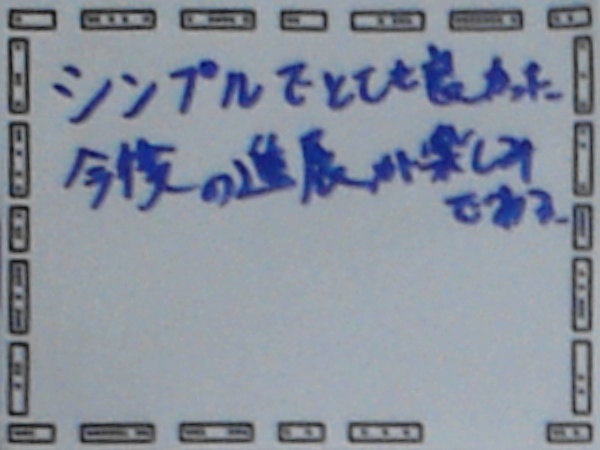 シンプルでとても良かった
今後の進展が楽しみ
である。